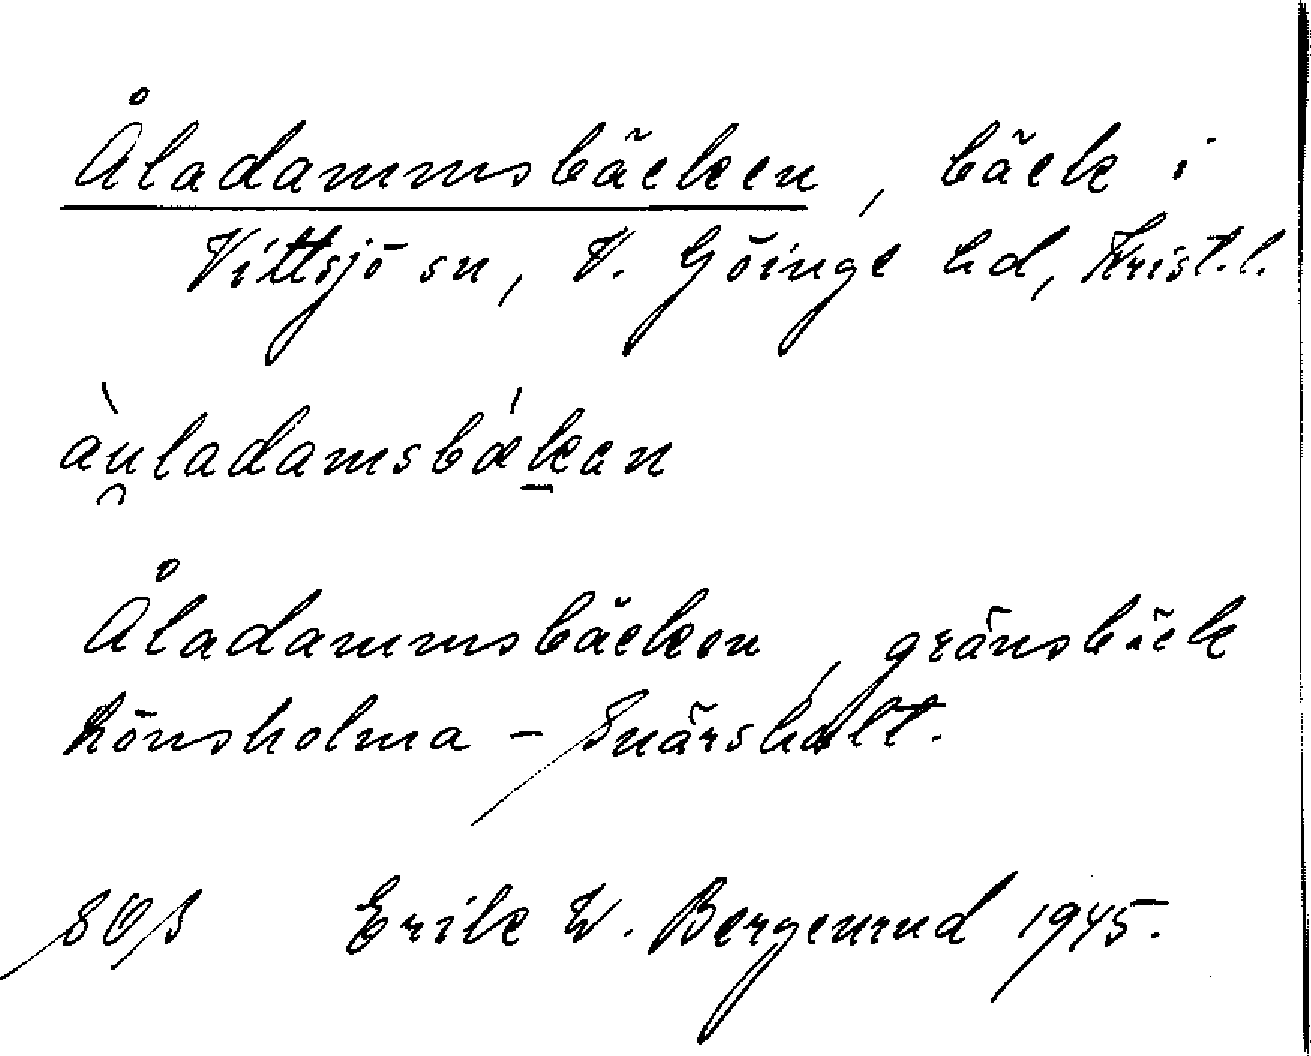 Åladammsbäcken, bäck i
Vittsjö sn, V. Göinge hd, Krist.l.
àu̯ladamsbǽkan
Åladammsbäcken, gränsbäck
Hönsholma - Snärshult.
SOS Erik W. Bergenrud 1945.